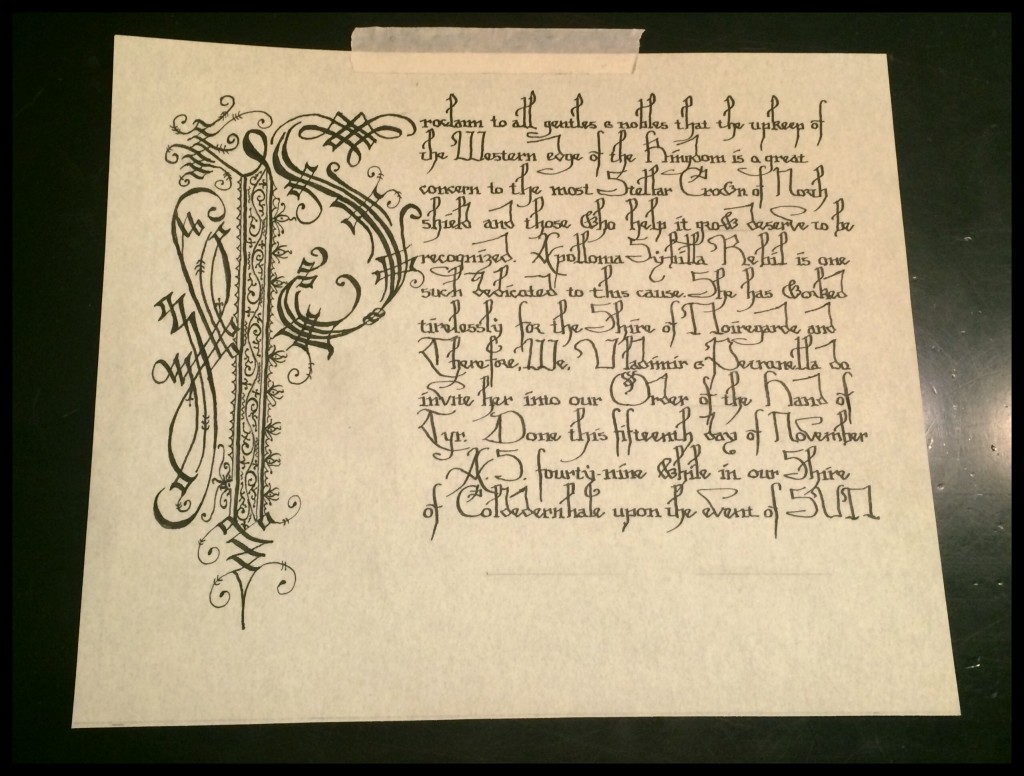 Proclaim to all gentles & nobles that the upkeep of
the Western edge of the Kingdom is a great
concern to the most Stellar Crown of North
shield and those who help it grow deserve to be
recognized. Apollonia Sybilla Rekil is one
such dedicated to this cause. She has worked
tirelessly for the Shire of Noiregarde and
Therefore, We, Vladimir & Petranella do
invite her into our Order of the Hand of
Tyr. Done this fifteenth day of November
A. S. fourty-nine while in our Shire
of Coldedernhale upon the event of SUN